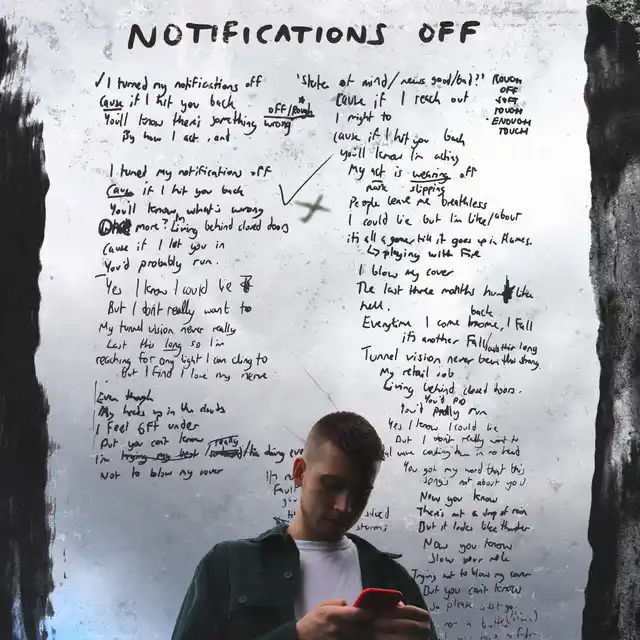 NOTIFICATIONS OFF
✓ I turned my notifications off
Cause if I hit you back
off/Rough
You'll know there's something wrong
By how I act, and
I turned my notifications off
Cause if I hit you back
You'll know what's wrong
more? Living behind closed doors
Cause if I let you in
You'd probably run.
Yes I know I could lie
But I don't really want to
My tunnel vision never really
Last this long so I'm
reaching for one light I can cling to
But I find I lose my nerve
Even though
My heads up in the clouds
I Feel 6ft under
But you can't know
really
I'm trying my best / I'm doing
Not to blow my cover
'State of mind/news good/bad?'
Cause if I reach out
I might to
cause if I hit you back
you'll know I'm acting
My act is wearing off
slipping
People leave me breathless
I could lie but I'm like/about
it's all a game till it goes up in flames.
↳ playing with Fire
I blow my cover
The last three months like
hell.
back
Everytime I come home, I Fall
it's another Fall
Tunnel vision never been this strong
My retail job
Living behind closed doors.
You'd
You'd run
Yes I know I could lie
But I don't really want to
You got my word that this
song's not about you
Now you know
There's not a drop of rain
But it looks like thunder
Now you know
Slow your role
Trying not to blow my cover
But you can't know
please
ROUGH
OFF
SOFT
TOUGH
ENOUGH
TOUCH